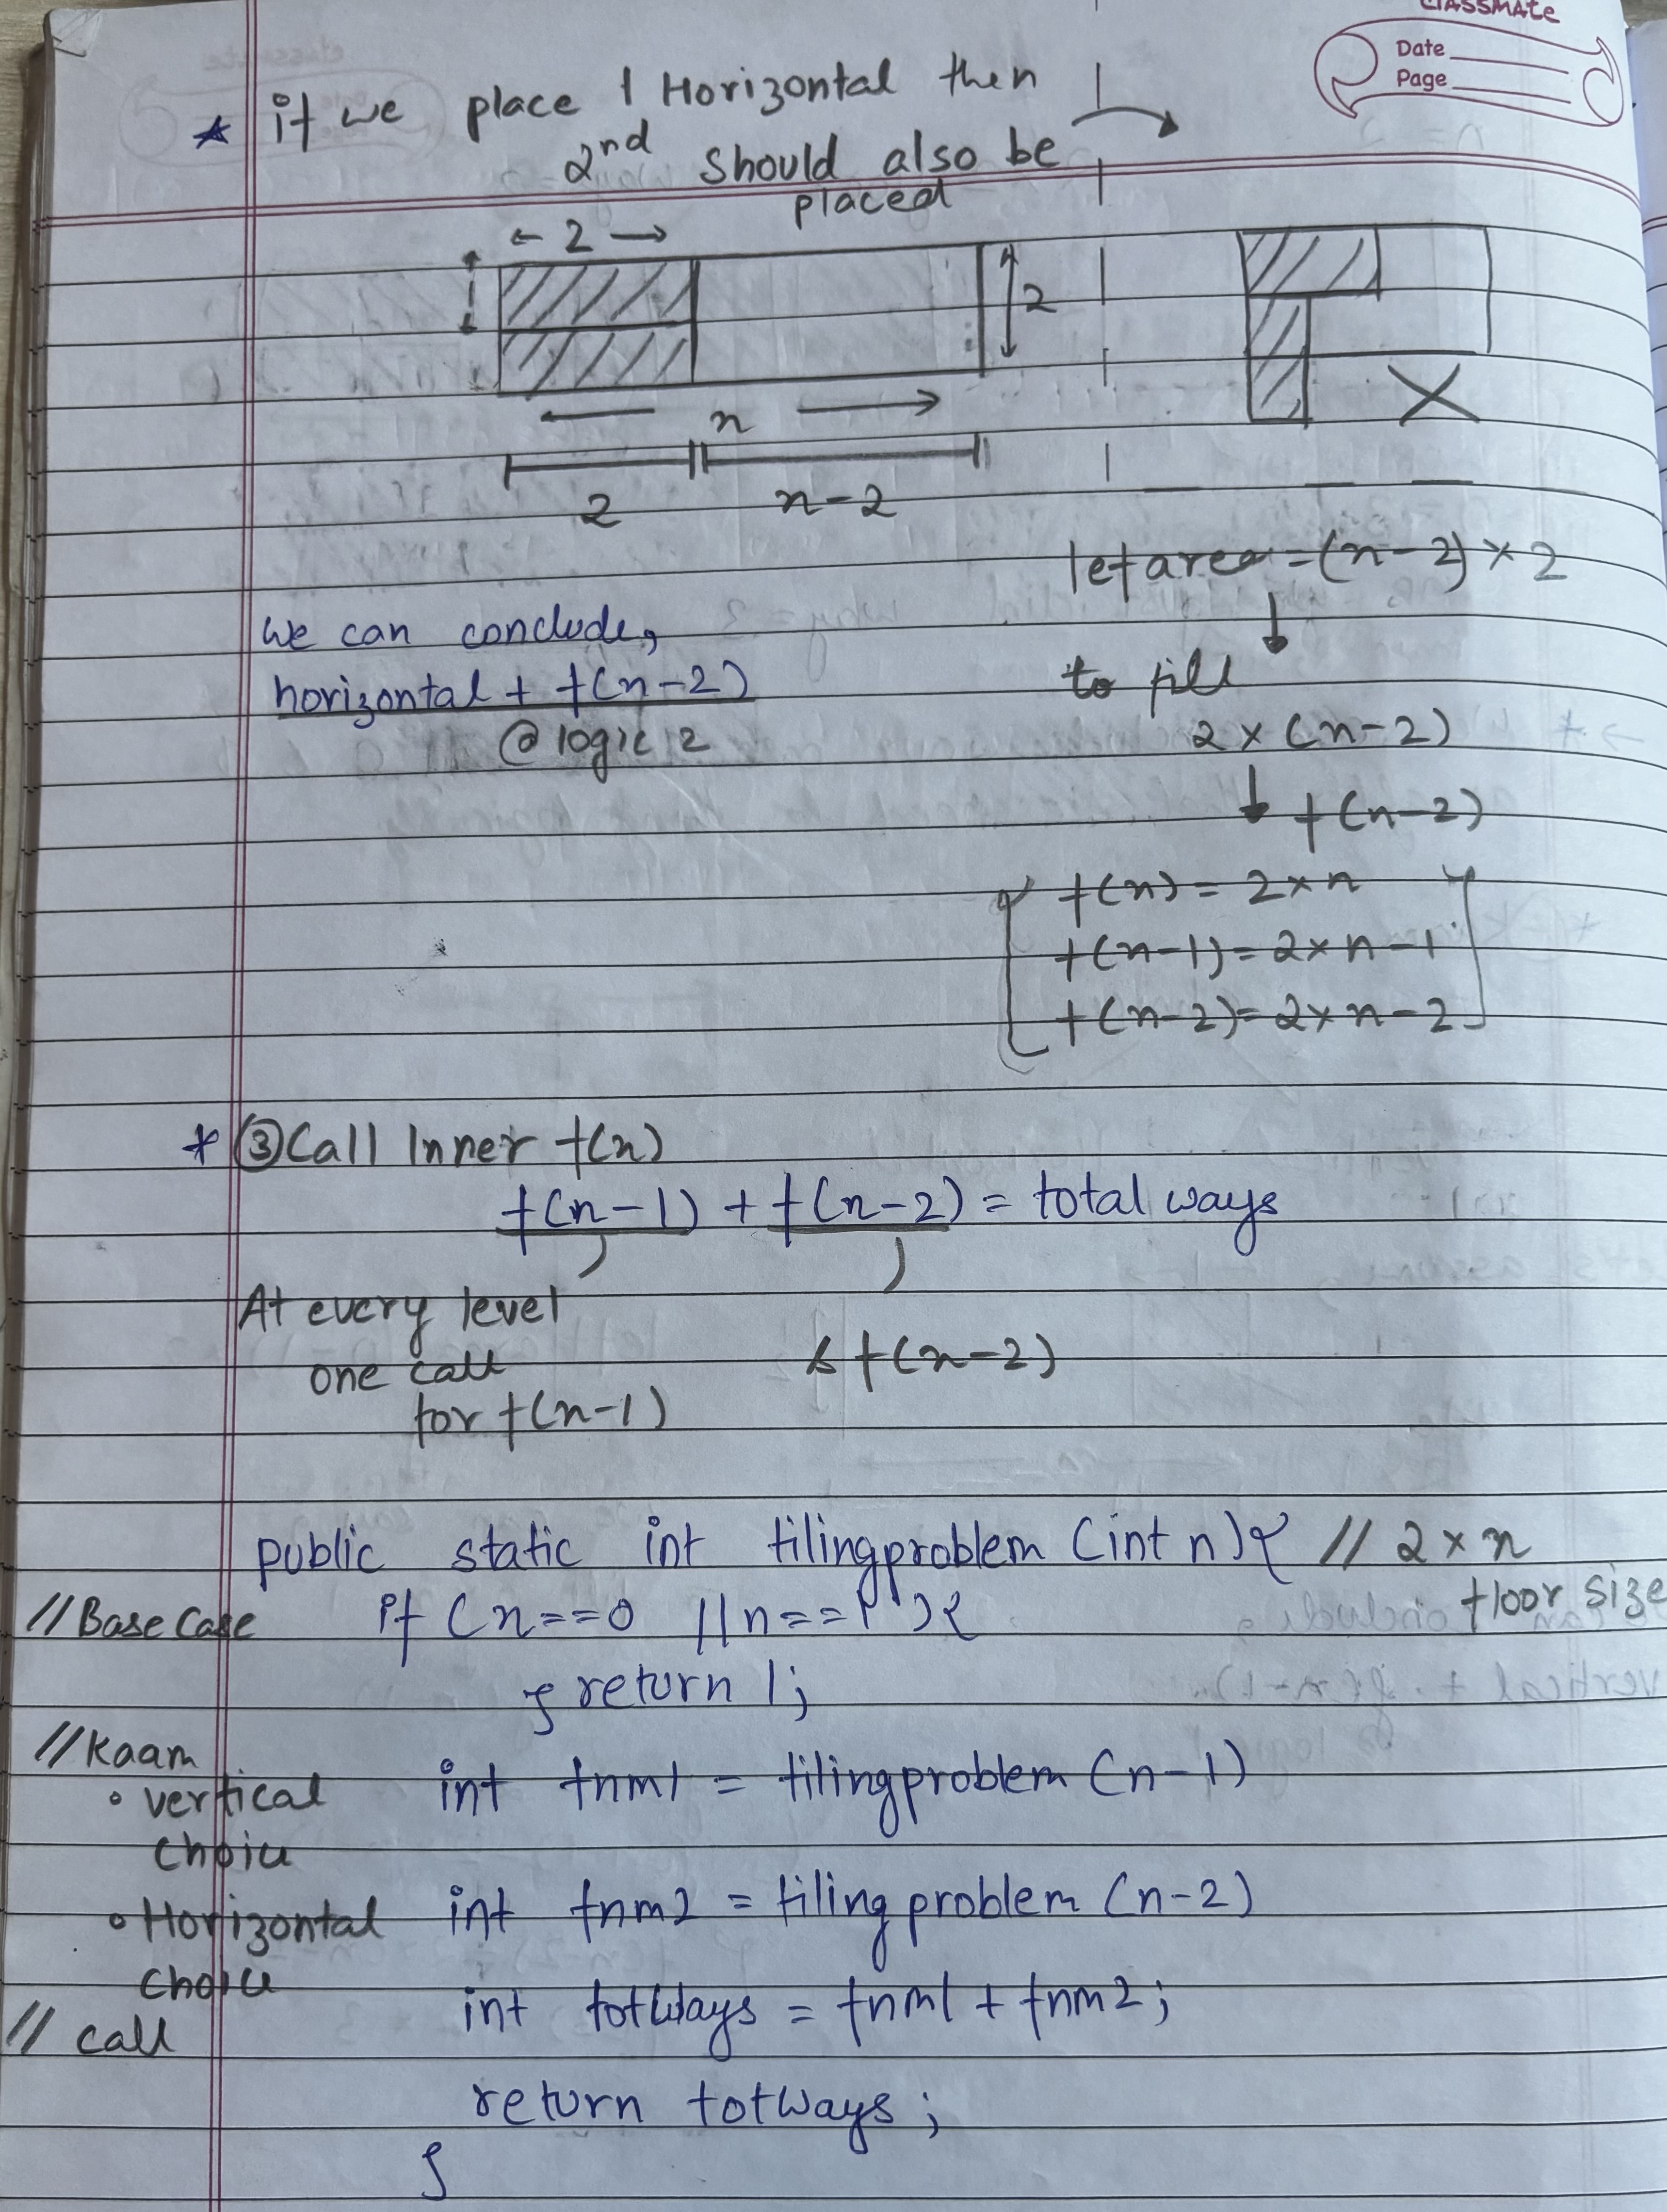 classmate
Date
Page
* if we place 1 Horizontal then
2nd should also be
placed
← 2 →
2
n
2 n-2
let area = (n-2) × 2
we can conclude,
horizontal + f(n-2)
@ logic 2
to fill
2 × (n-2)
f(n-2)
f(n) = 2×n
f(n-1) = 2×n-1
f(n-2) = 2×n-2
* ③ Call Inner f(n)
f(n-1) + f(n-2) = total ways
At every level
one call
for f(n-1)
& f(n-2)
public static int tilingproblem (int n) { // 2 × n
floor size
// Base Case if (n==0 || n==1) {
} return 1;
// Kaam
• vertical
choice
int fnm1 = tilingproblem (n-1)
• Horizontal
choice
int fnm2 = tiling problem (n-2)
// call
int totWays = fnm1 + fnm2;
return totWays;
}